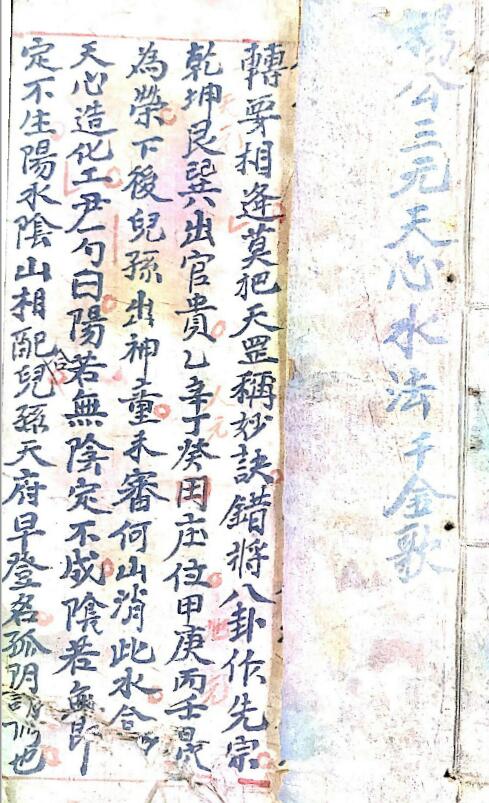 楊公三元天心水法千金歌
轉要相逢莫把天罡稱妙訣錯將八卦作先宗
乾坤艮巽出官貴乙辛丁癸田庄位甲庚丙壬㝡
為榮下後兒孫出神童未審何山消此水合
天心造化工尹一勺曰陽若無陰定不成陰若無即
定不生陽水陰山相配合兒孫天府早登名孤陰也
人元